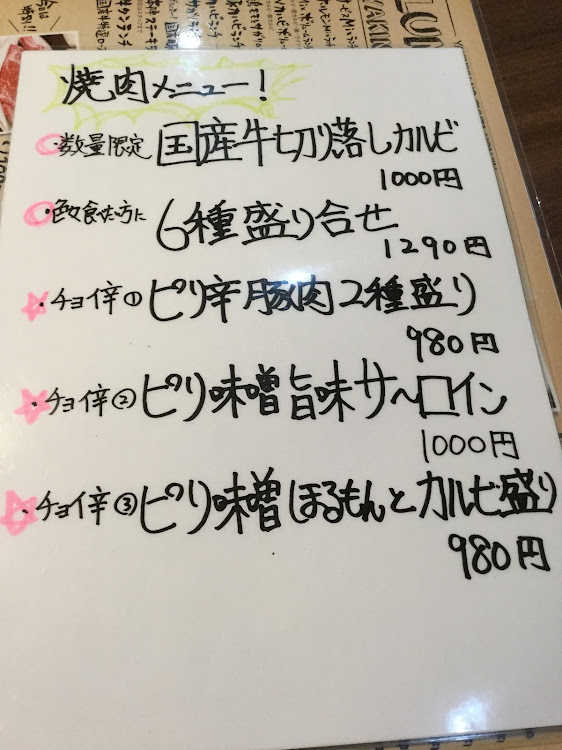 焼肉メニュー!
・数量限定 国産牛切り落しカルビ
1000円
6種盛り合せ
1290円
・チョイ辛① ピリ辛豚肉2種盛り
980円
・チョイ辛② ピリ味噌旨味サーロイン
1000円
・チョイ辛③ ピリ味噌ほるもんとカルビ盛り
980円